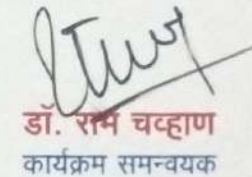 डॉ. राम चव्हाण
कार्यक्रम समन्वयक